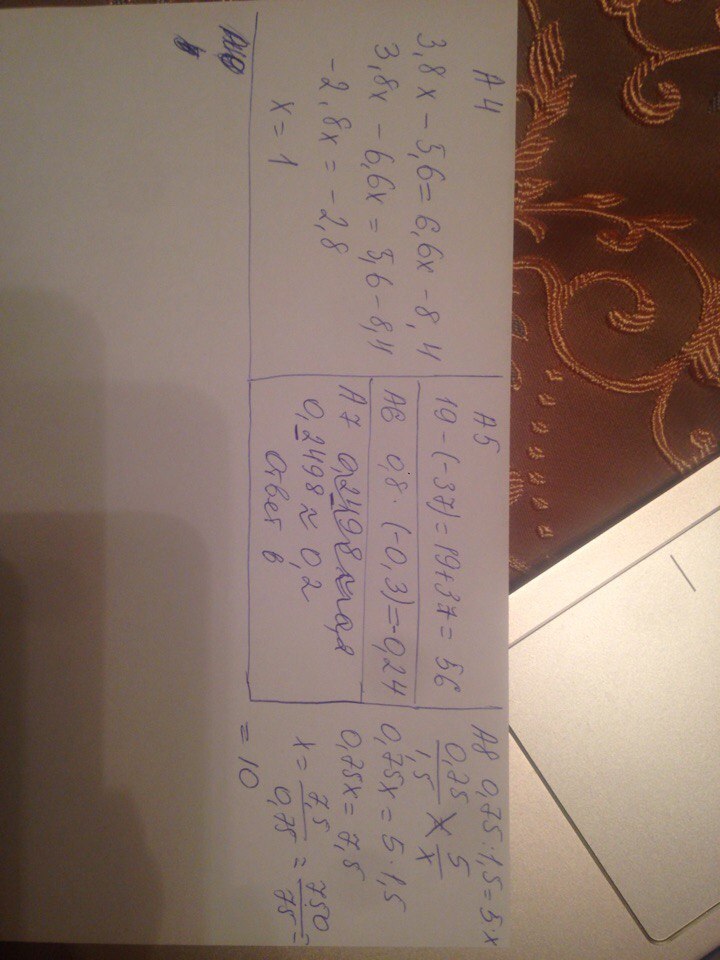 А4
3,8х - 5,6 = 6,6х - 8,4
3,8х - 6,6х = 5,6 - 8,4
-2,8х = -2,8
х = 1
А5
19 - (-37) = 19 + 37 = 56
А6 0,8 · (-0,3) = -0,24
А7
0,2498 ≈ 0,2
Ответ в
А8 0,75 : 1,5 = 5 : х
0,75/1,5 = 5/х
0,75х = 5 · 1,5
0,75х = 7,5
х = 7,5/0,75 = 750/75 =
= 10